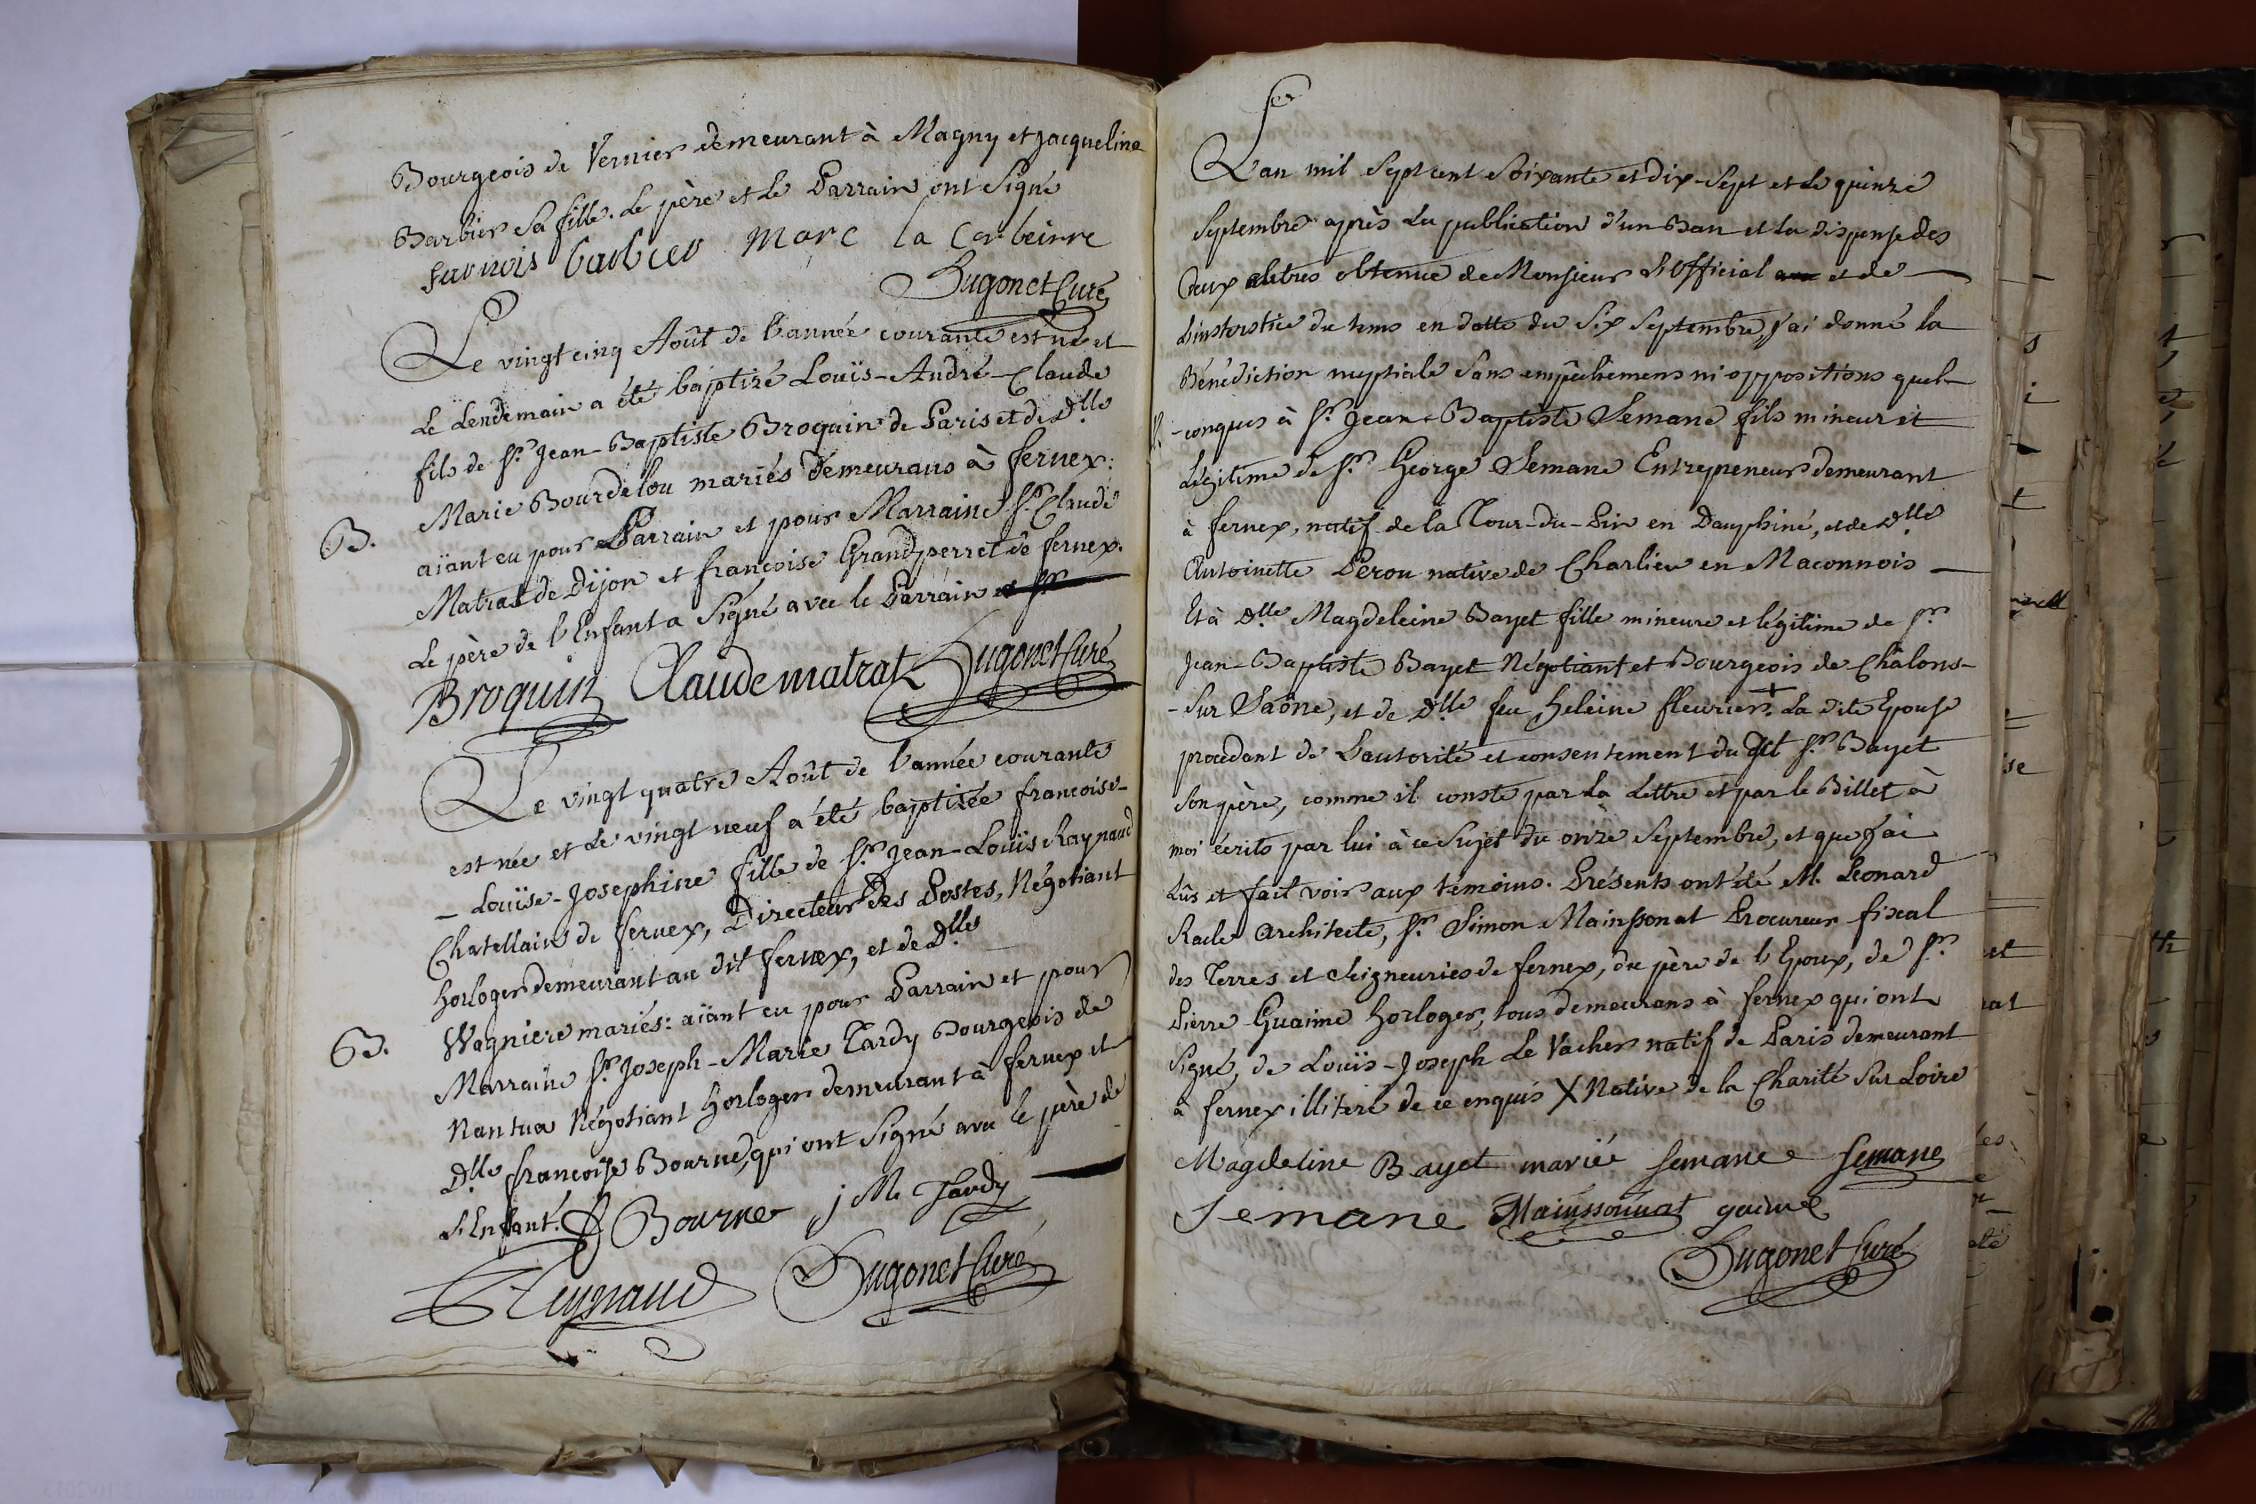 Bourgeois de Vernier demeurant à Magny et jacqueline
Barbier sa fille. le père et le Parrain ont signé
barbier marc la Corbeirre
Hugonet Curé
Le vingt cinq Août de l'année courante est né et
le lendemain a été baptizé Louïs-André-Claude
fils de Sr. Jean-Baptiste Broquin de Paris et de dlle
Marie Bourdelou mariés demeurans à fernex:
B.
aïant eu pour Parrain et pour Marraine Sr. Claude
Matrat de Dijon et françoise Grandperret de fernex.
Le père de l'Enfant a signé avec le Parrain
Broquin Claude matrat Hugonet Curé
Le vingt quatre Août de l'année courante
est née et le vingt neuf a été baptisée francoise-
-Louïse-Josephine fille de Sr. Jean-Louïs Raynaud
Chatellain de fernex, Directeur des Postes, Négotiant
horloger demeurant au dit fernex, et de dlle
B.
Wagniere mariés: aïant eu pour Parrain et pour
Marraine Sr. Joseph-Marie Tardy Bourgeois de
Nantua Négotiant horloger demeurant à fernex et
dlle francoise Bourne, qui ont signé avec le père de
l'Enfant. Bourne j M. Tardy
Reynaud Hugonet Curé
L'an mil sept cent soixante et dix-sept et le quinze
septembre après la publication d'un Ban et la dispense des
deux autres obtenue de Monsieur L'Official et de
L'insterstice du tems en datte du six septembre, j'ai donné la
Bénédiction nuptiale sans empêchemens ni oppositions quel-
-conques à Sr. Jean-Baptiste Semane fils mineur et
Légitime de Sr. George Semane Entrepeneur demeurant
à fernex, natif de la Tour-du-Pin en Dauphiné, et de dlle
Antoinette Perou native de Charlieu en Maconnois
Et à dlle Magdeleine Bayet fille mineure et légitime de Sr.
Jean-Baptiste Bayet Négotiant et Bourgeois de Châlons-
-sur Saône, et de dlle feu heleine fleurier. + La dite Epouse
procedant de L'autorité et consentement du dit Sr. Bayet
son père, comme il conste par la Lettre et par le Billet à
moi écrits par lui à ce sujet du onze septembre, et que j'ai
Lûs et fait voir aux témoins. Présents ont été M. Leonard
Racle Architecte, Sr. Simon Mainssonat Procureur fiscal
des Terres et Seigneuries de fernex, du père de l'Epoux, de Sr.
Pierre Guaime horloger, tous demeurans à fernex qui ont
signé, de Louïs-Joseph Le Vacher natif de Paris demeurant
à fernex illiteré de ce enquis X Native de la Charité sur Loire
Magdeline Bayet marié Semane Semane
Semane Mainssonnat guaime
Hugonet Curé